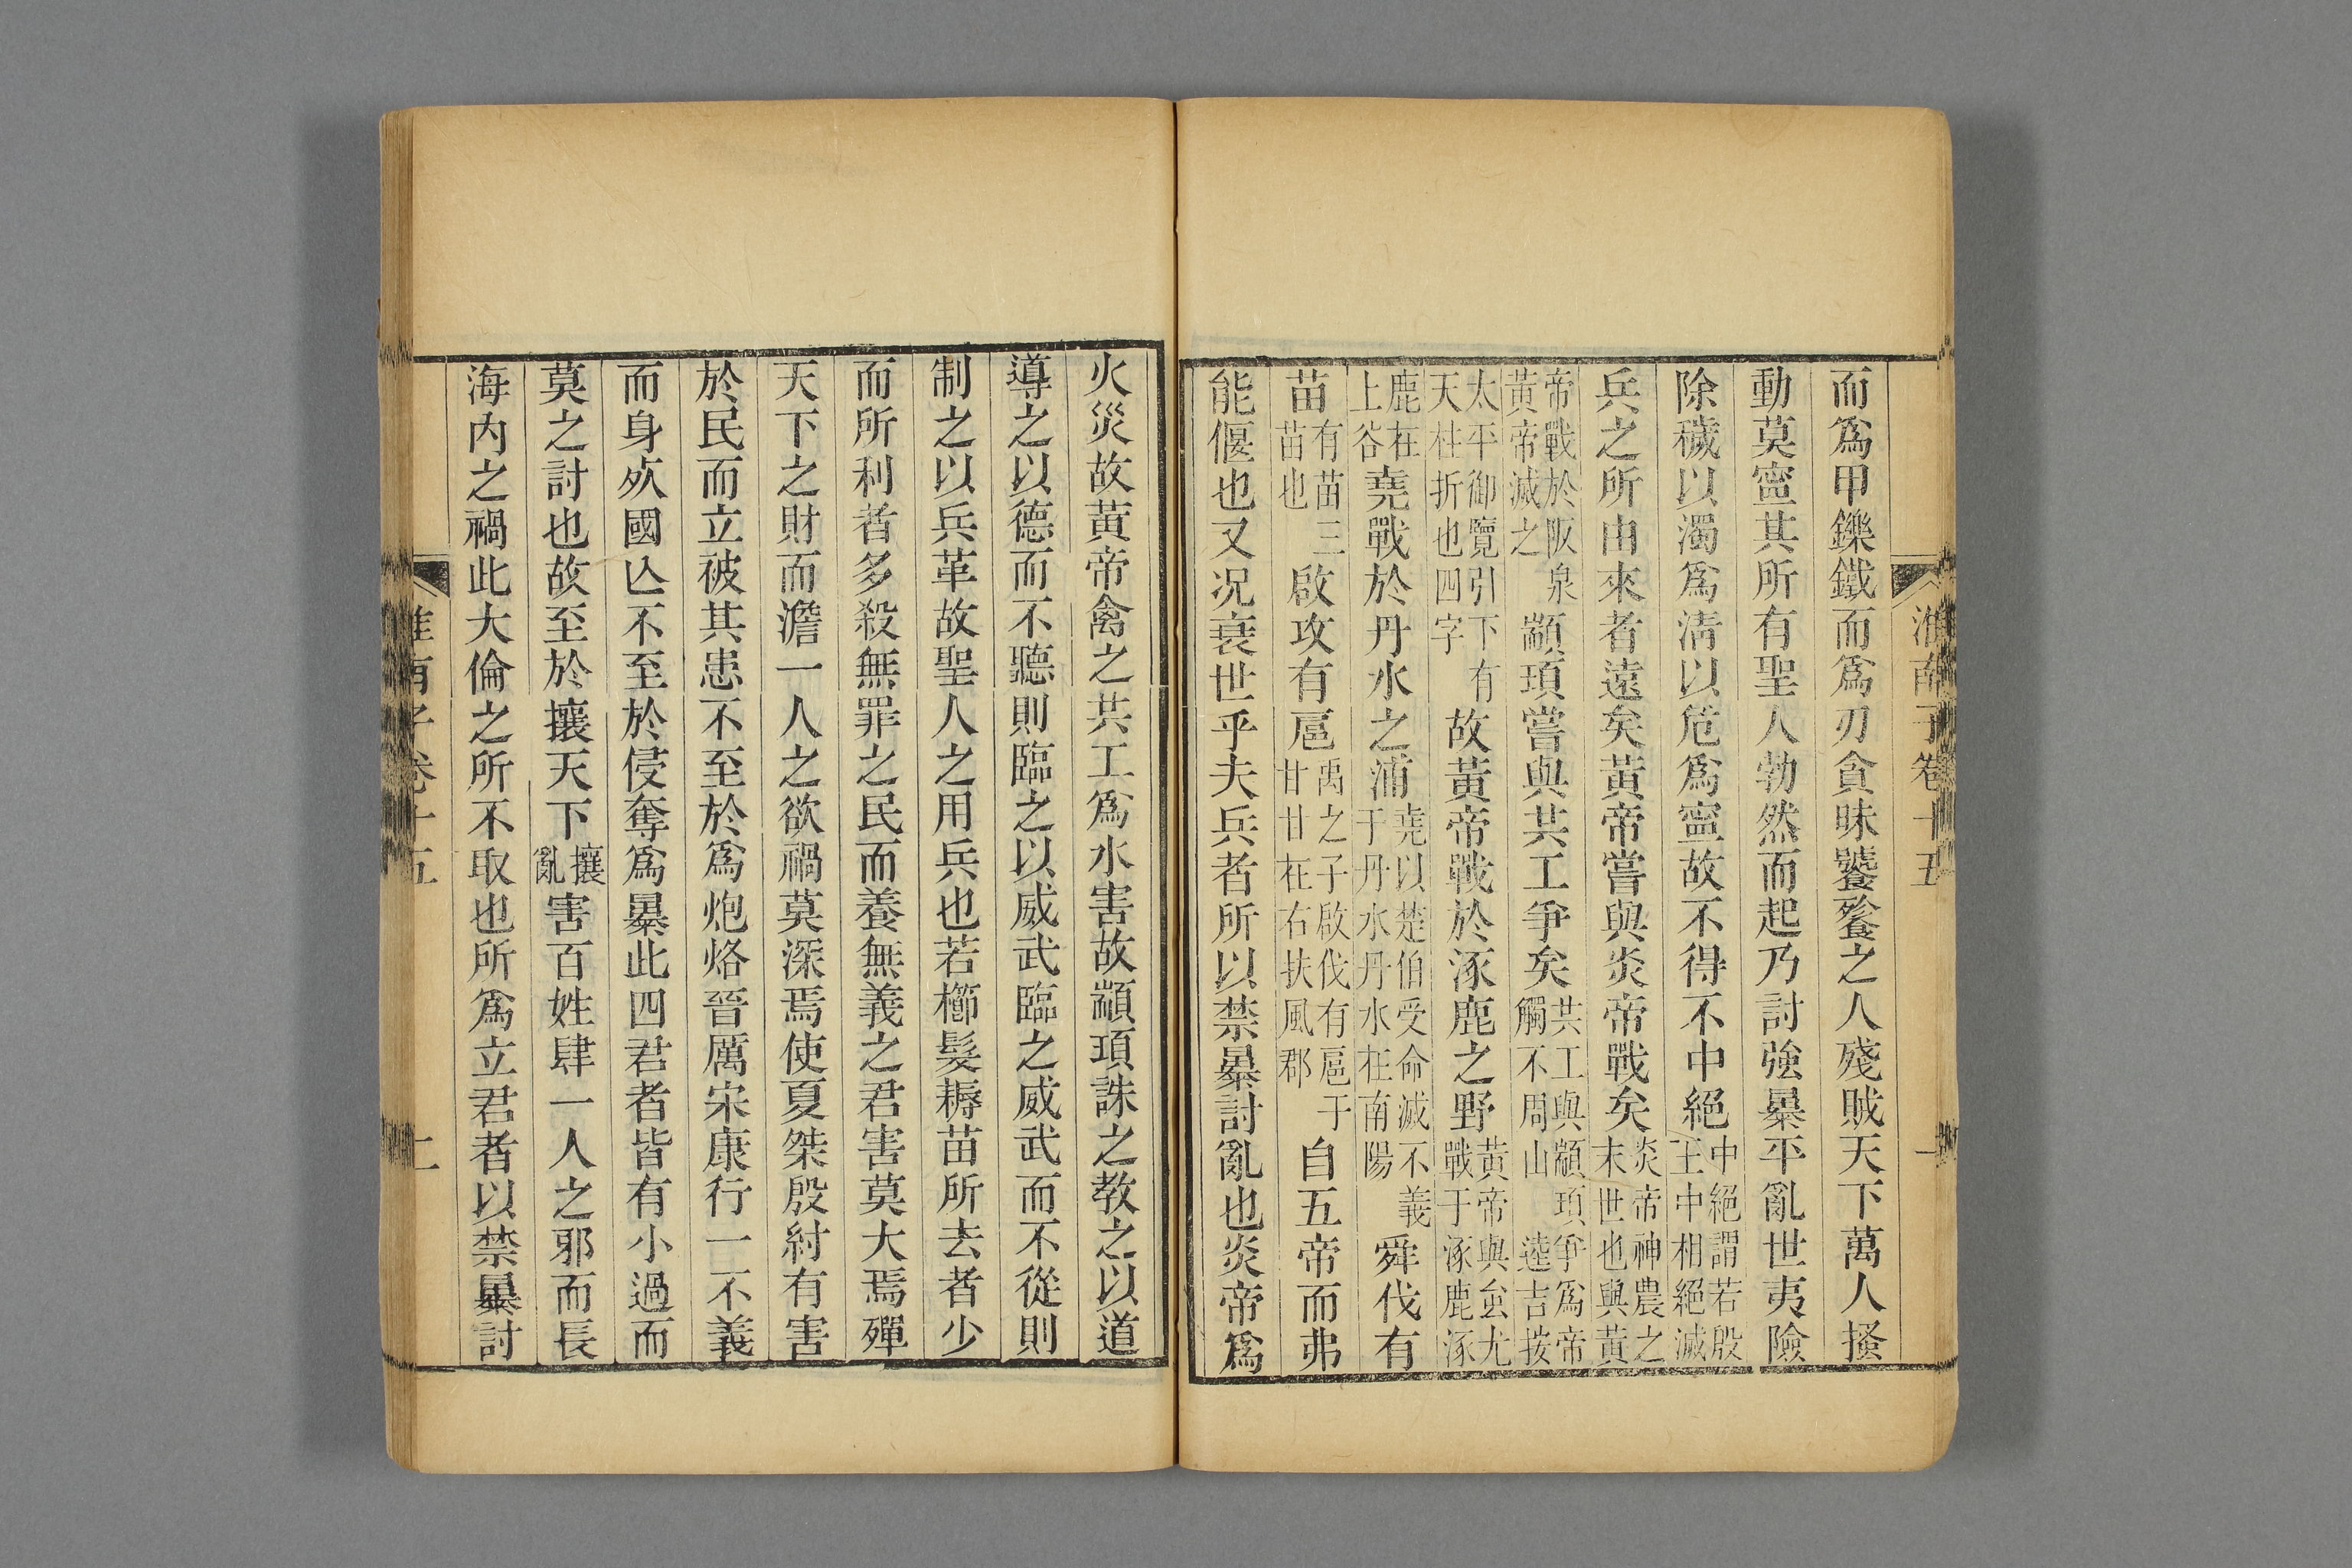 淮南子卷十五
一
而爲甲鑠鐵而爲刃貪昧饕餮之人殘賊天下萬人搔
動莫寍其所有聖人勃然而起乃討強暴平亂世夷險
除穢以濁爲淸以危爲寍故不得不中絕中絕謂若殷王中相絕滅
兵之所由來者遠矣黃帝嘗與炎帝戰矣炎帝神農之末世也與黃
帝戰於阪泉黃帝滅之顓頊嘗與共工爭矣共工與顓頊爭爲帝觸不周山逵吉按
太平御覽引下有天柱折也四字故黃帝戰於涿鹿之野黃帝與蚩尤戰于涿鹿涿
鹿在上谷堯戰於丹水之浦堯以楚伯受命滅不義于丹水丹水在南陽舜伐有
苗有苗三苗也啟攻有扈禹之子啟伐有扈于甘甘在右扶風郡自五帝而弗
能偃也又况衰世乎夫兵者所以禁暴討亂也炎帝爲
火災故黃帝禽之共工爲水害故顓頊誅之教之以道
導之以德而不聽則臨之以威武臨之威武而不從則
制之以兵革故聖人之用兵也若櫛髮耨苗所去者少
而所利者多殺無罪之民而養無義之君害莫大焉殫
天下之財而澹一人之欲禍莫深焉使夏桀殷紂有害
於民而立被其患不至於爲炮烙晉厲宋康行一不義
而身𣦸國亾不至於侵奪爲暴此四君者皆有小過而
莫之討也故至於攘天下攘亂害百姓肆一人之邪而長
海內之禍此大倫之所不取也所爲立君者以禁暴討
淮南子卷十五